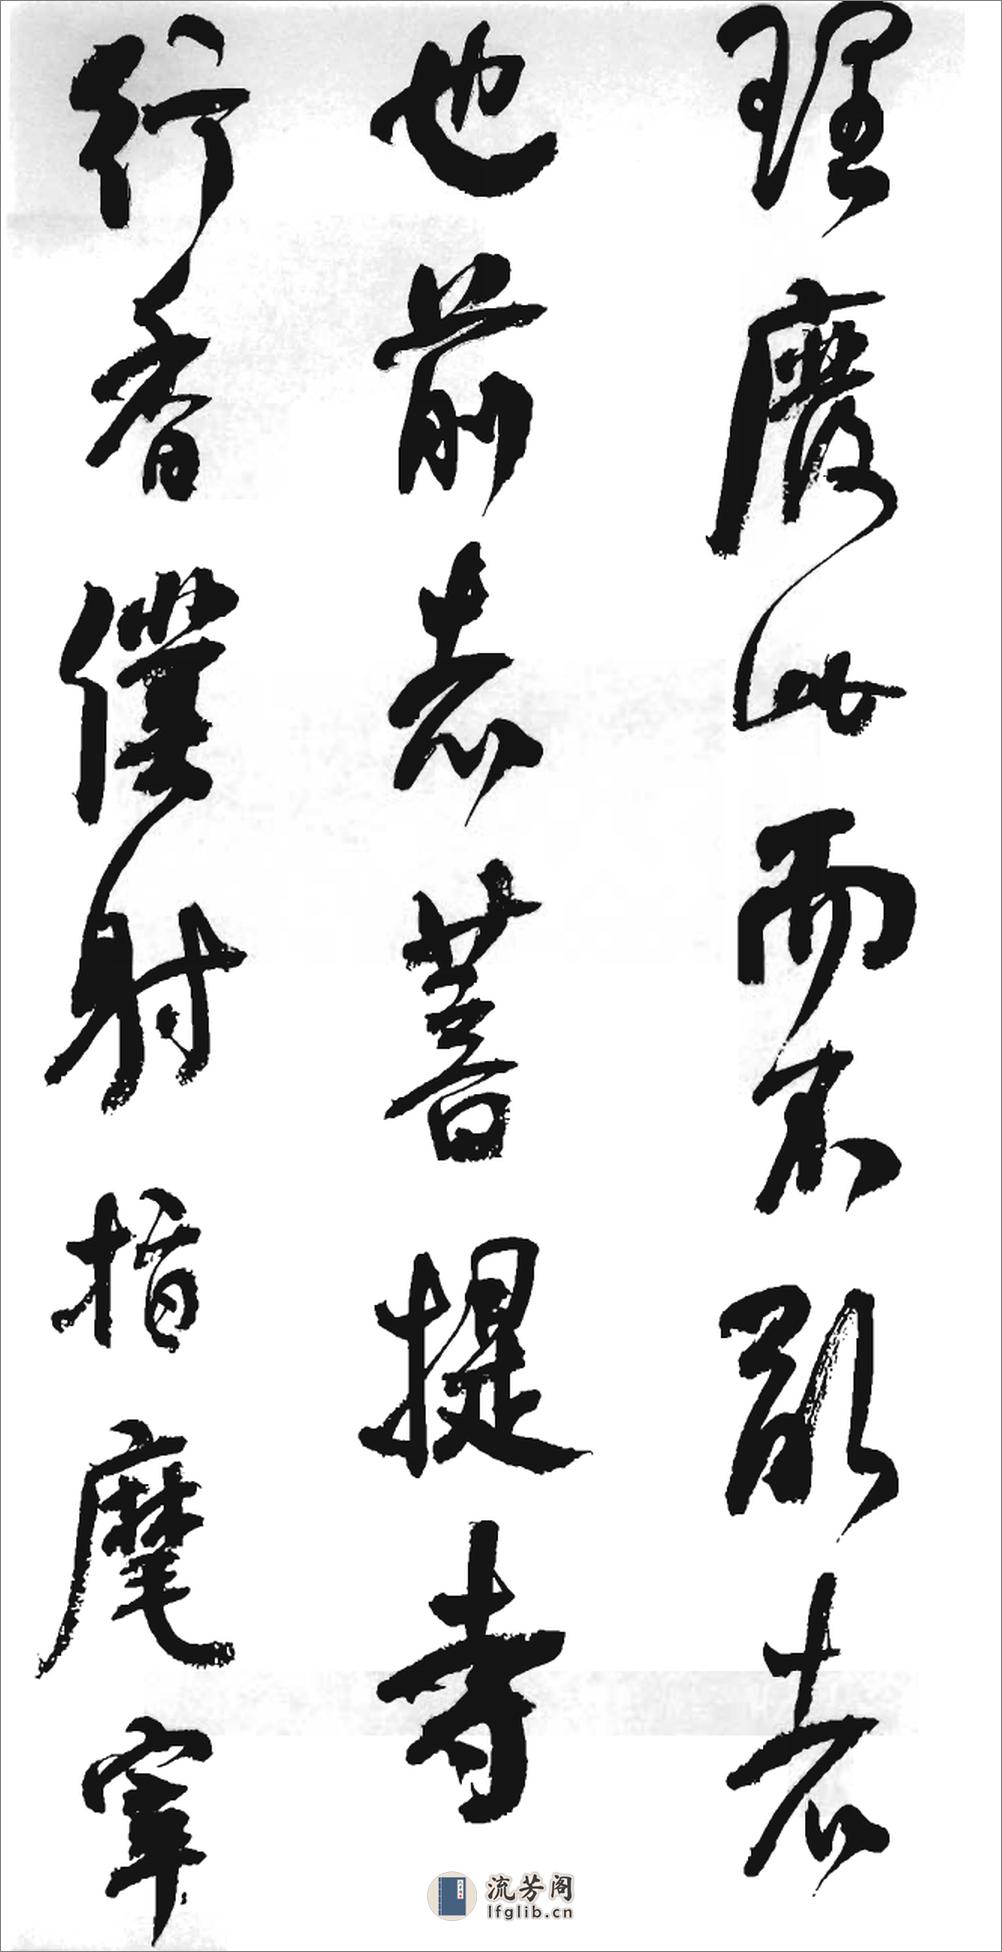 理廢此而不顧者
也前者菩提寺
行香僕射指麾宰
流芳阁
lfglib.cn